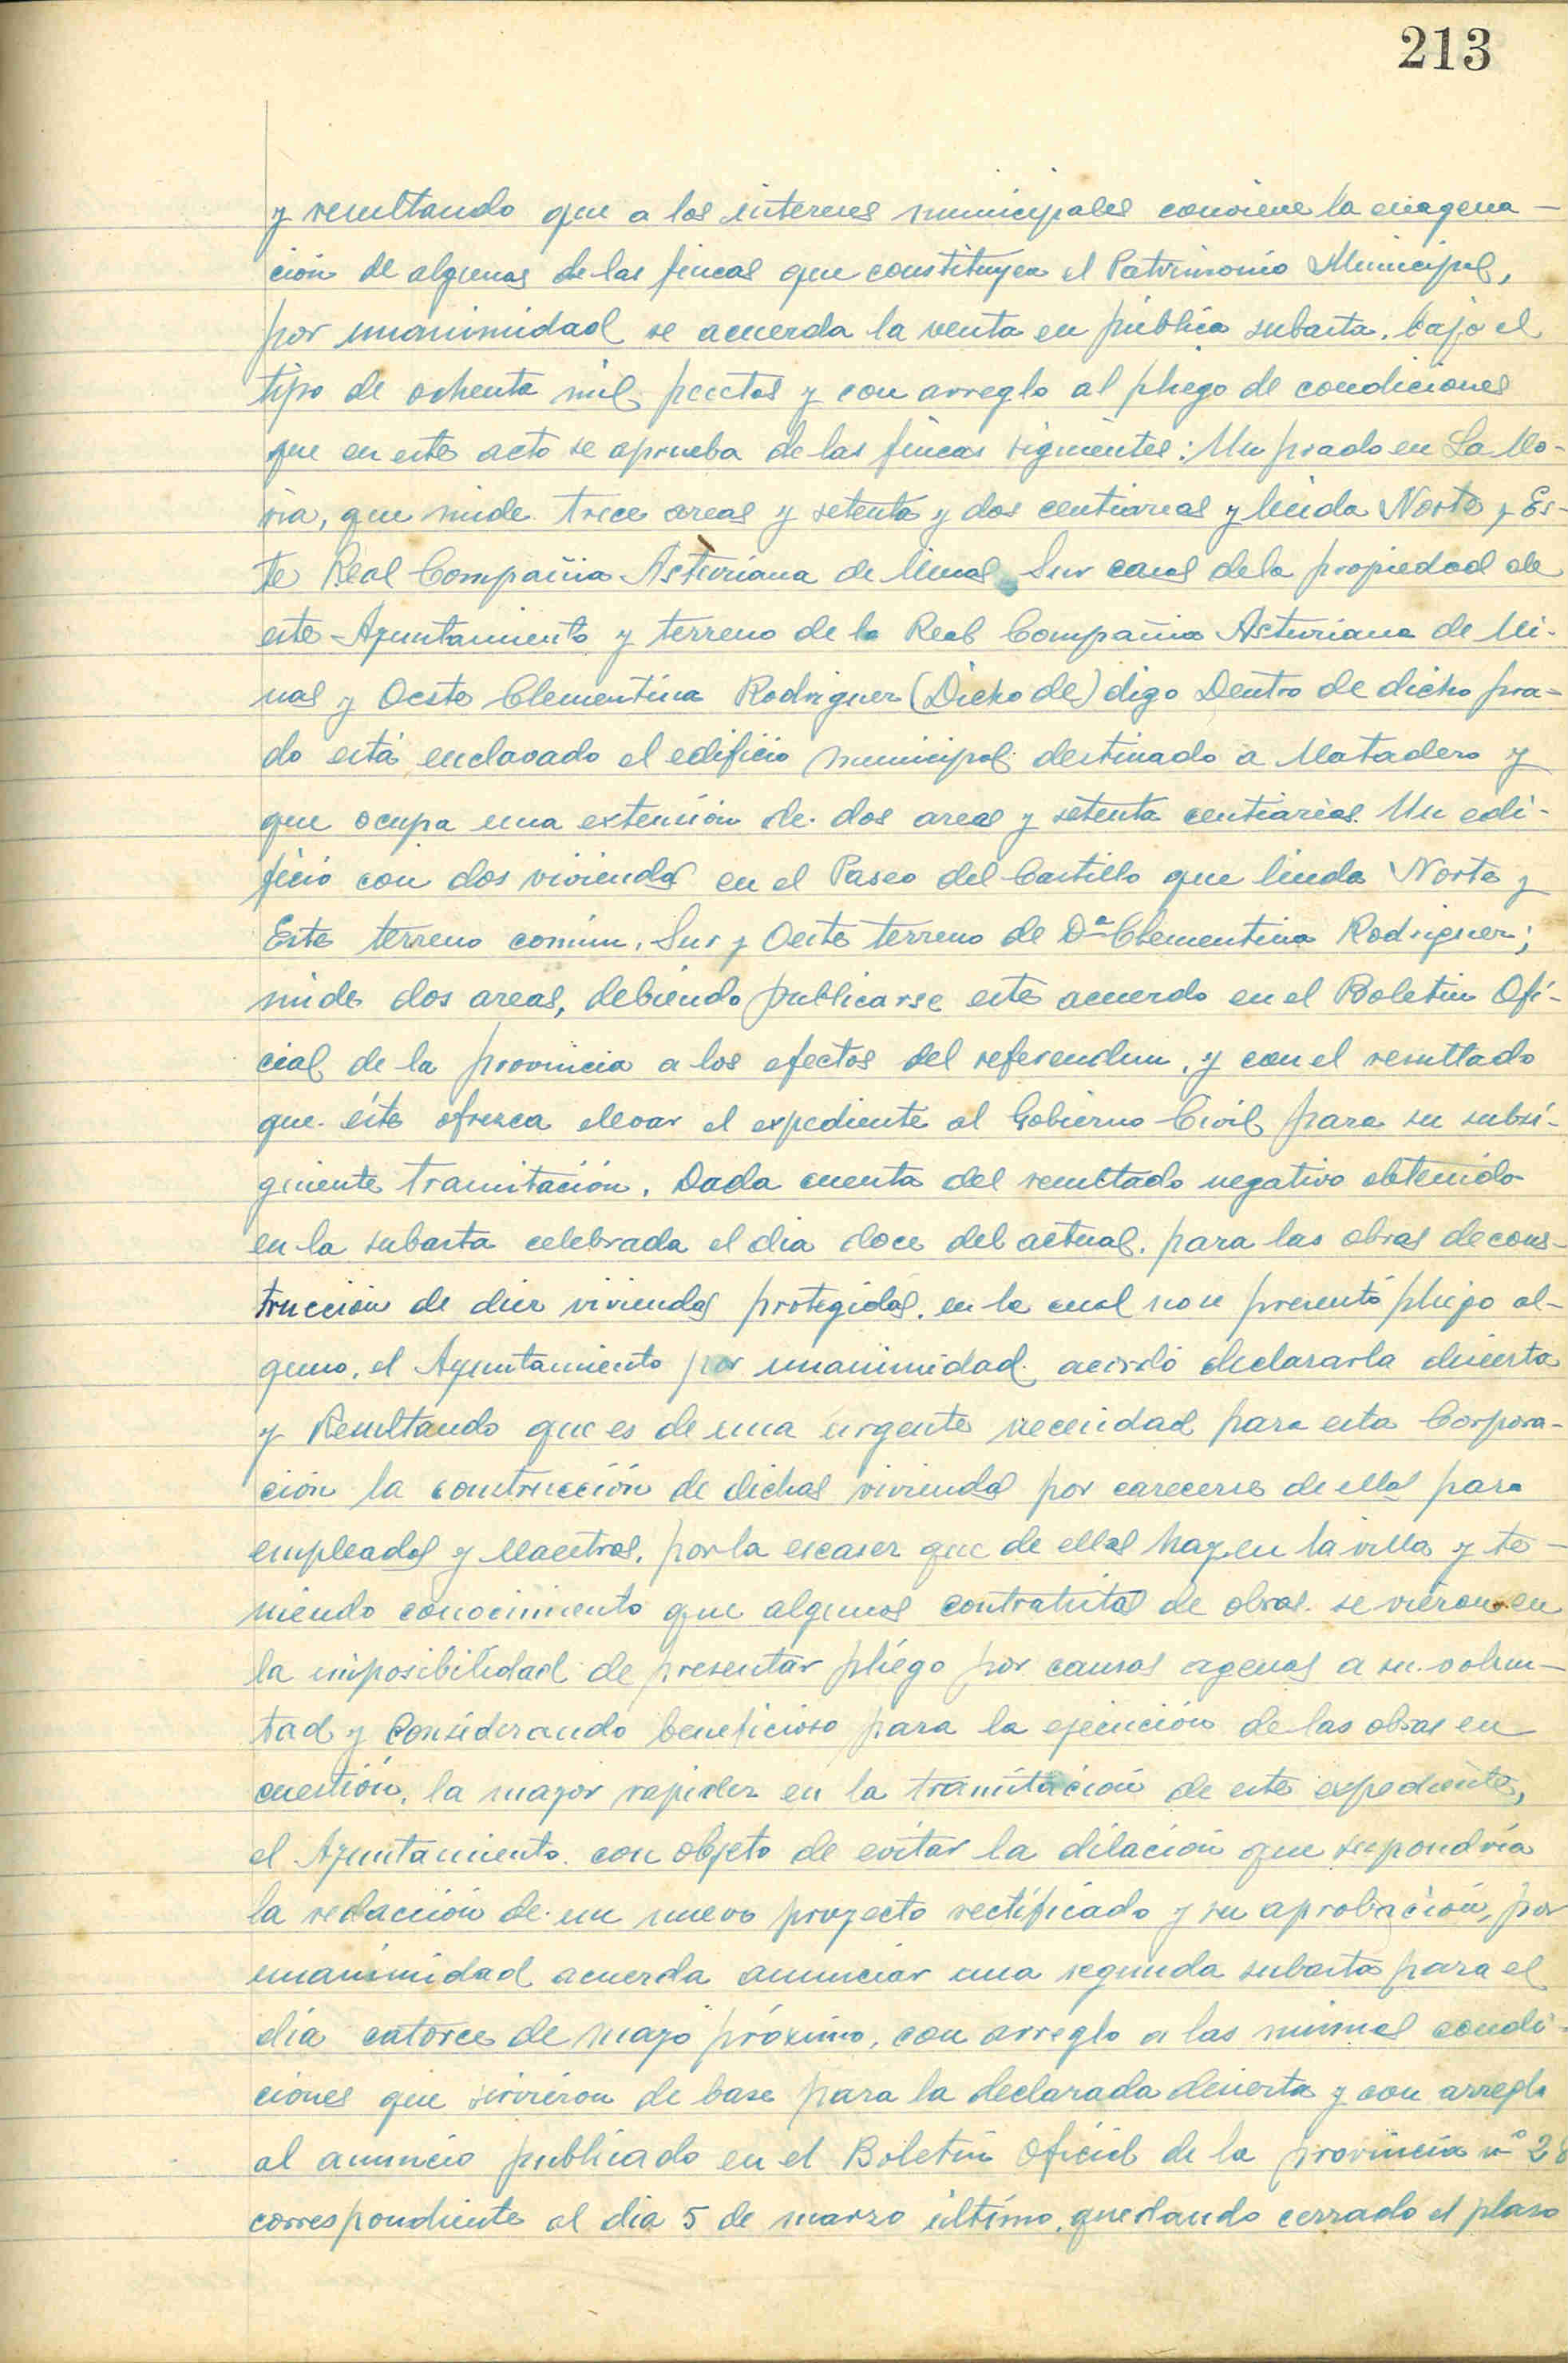 213
y resultando que a los intereses municipales conviene la enagena-
ción de algunas de las fincas que constituyen el Patrimonio Municipal,
por unanimidad se acuerda la venta en pública subasta, bajo el
tipo de ochenta mil pesetas y con arreglo al pliego de condiciones
que en este acto se aprueba de las fincas siguientes: Un prado en La No-
ria, que mide trece areas y setenta y dos centiareas y linda Norte y Es-
te Real Compañia Asturiana de Minas, Sur casas de la propiedad de
este Ayuntamiento y terreno de la Real Compañia Asturiana de Mi-
nas y Oeste Clementina Rodriguez (Dicho de) digo Dentro de dicho pra-
do está enclavado el edificio municipal destinado a Matadero y
que ocupa una extensión de dos areas y setenta centiareas. Un edi-
ficio con dos viviendas en el Paseo del Castillo que linda Norte y
Este terreno común, Sur y Oeste terreno de Dª Clementina Rodriguez;
mide dos areas, debiendo publicarse este acuerdo en el Boletin Ofi-
cial de la provincia a los efectos del referendum, y con el resultado
que éste ofrezca elevar el expediente al Gobierno Civil para su subsi-
guiente tramitación. Dada cuenta del resultado negativo obtenido
en la subasta celebrada el dia doce del actual, para las obras de cons-
trucción de diez viviendas protegidas, en la cual no se presentó pliego al-
guno, el Ayuntamiento por unanimidad acordó declararla desierta
y Resultando que es de una urgente necesidad para esta Corpora-
ción la construcción de dichas viviendas por carecerse de ellas para
empleados y Maestros, por la escasez que de ellas hay en la villa y te-
niendo conocimiento que algunos contratistas de obras se vieron en
la imposibilidad de presentar pliego por causas agenas a su volun-
tad y Considerando beneficioso para la ejecución de las obras en
cuestión, la mayor rapidez en la tramitación de este expediente,
el Ayuntamiento con objeto de evitar la dilación que supondría
la redacción de un nuevo proyecto rectificado y su aprobación, por
unanimidad acuerda anunciar una segunda subasta para el
día catorce de mayo próximo, con arreglo a las mismas condi-
ciones que sirvieron de base para la declarada desierta y con arreglo
al anuncio publicado en el Boletin Oficial de la provincia nº 28
correspondiente al dia 5 de marzo último, quedando cerrado el plazo